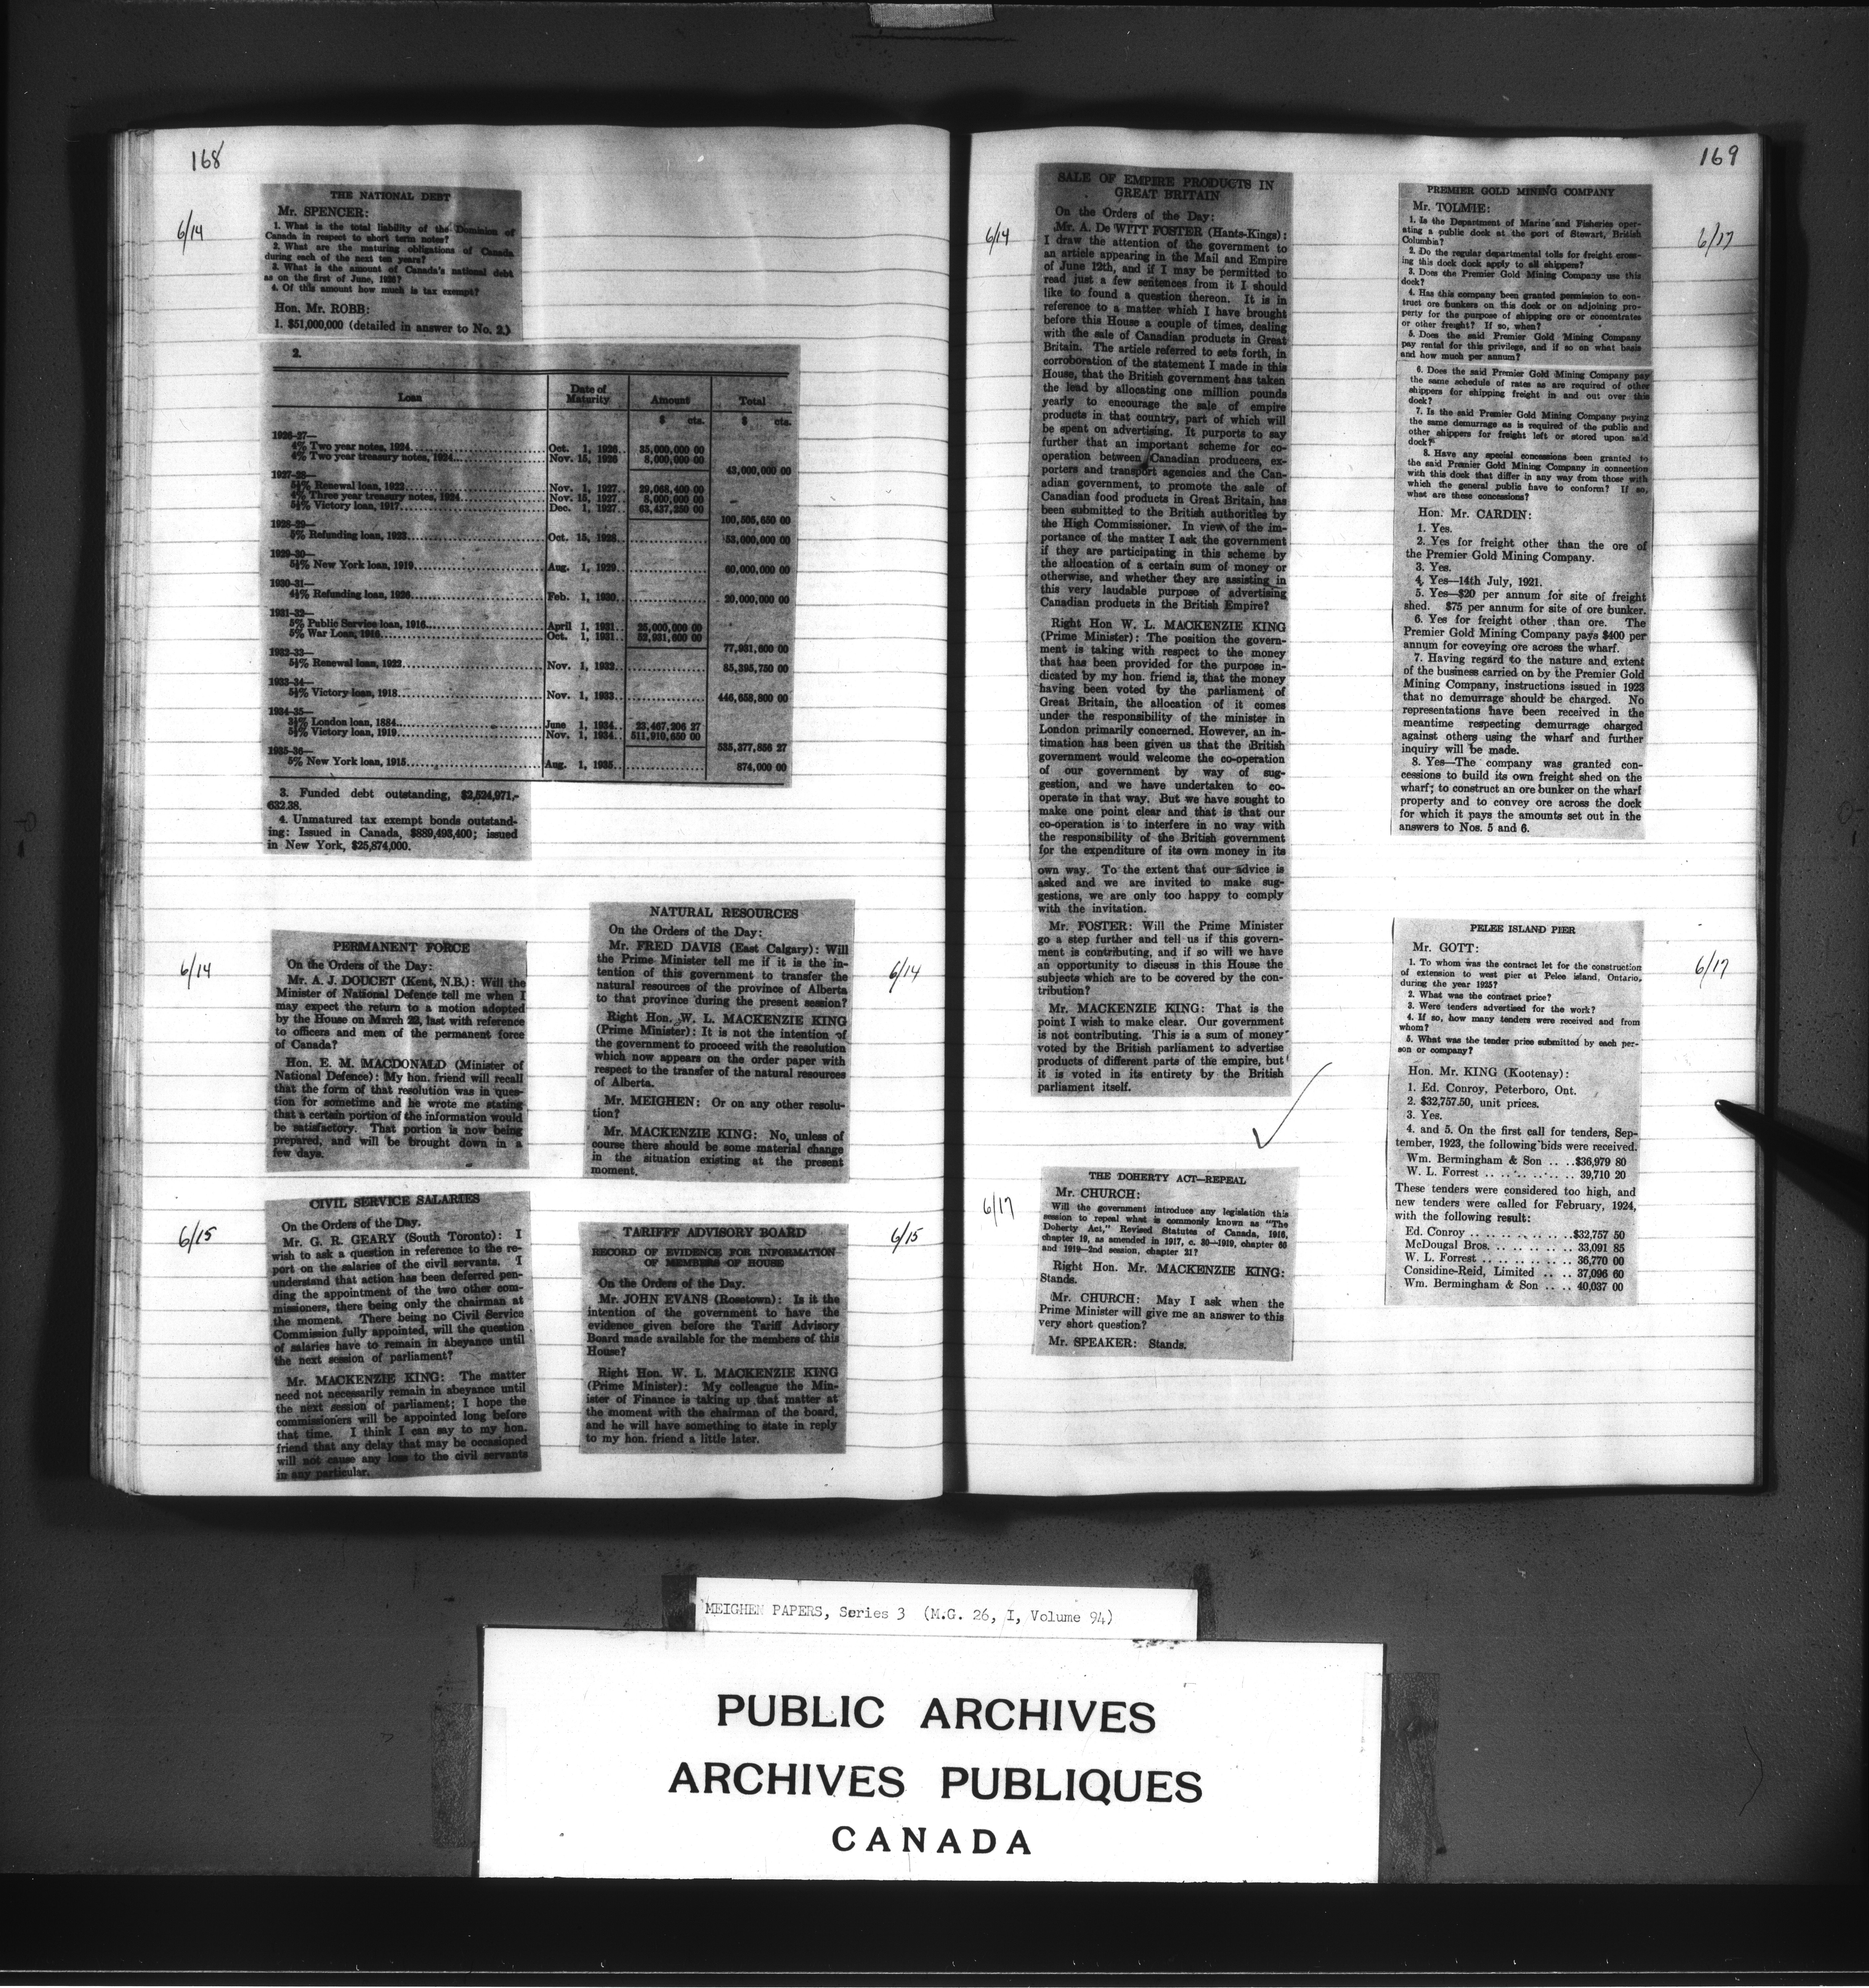 168
6/14
THE NATIONAL DEBT
Mr. SPENCER:
1. What is the total liability of the Dominion of
Canada in respect to short term notes?
2. What are the maturing obligations of Canada
during each of the next ten years?
3. What is the amount of Canada's national debt
as on the first of June, 1926?
4. Of this amount how much is tax exempt?
Hon. Mr. ROBB:
1. $51,000,000 (detailed in answer to No. 2.)
2.
Loan Date of Maturity Amount Total
$ cts. $ cts.
1926-27—
4% Two year notes, 1924 Oct. 1, 1926 35,000,000 00
4% Two year treasury notes, 1924 Nov. 15, 1926 8,000,000 00
43,000,000 00
1927-28—
5½% Renewal loan, 1922 Nov. 1, 1927 29,068,400 00
4% Three year treasury notes, 1924 Nov. 15, 1927 8,000,000 00
5½% Victory loan, 1917 Dec. 1, 1927 63,437,250 00
100,505,650 00
1928-29—
5% Refunding loan, 1923 Oct. 15, 1928 53,000,000 00
1929-30—
5½% New York loan, 1919 Aug. 1, 1929 60,000,000 00
1930-31—
4½% Refunding loan, 1926 Feb. 1, 1930 20,000,000 00
1931-32—
5% Public Service loan, 1916 April 1, 1931 25,000,000 00
5% War Loan, 1916 Oct. 1, 1931 52,931,600 00
77,931,600 00
1932-33—
5½% Renewal loan, 1922 Nov. 1, 1932 85,395,750 00
1933-34—
5½% Victory loan, 1918 Nov. 1, 1933 446,658,800 00
1934-35—
3½% London loan, 1884 June 1, 1934 23,467,206 27
5½% Victory loan, 1919 Nov. 1, 1934 511,910,650 00
535,377,856 27
1935-36—
5% New York loan, 1915 Aug. 1, 1935 874,000 00
3. Funded debt outstanding, $2,524,971,-
632.38.
4. Unmatured tax exempt bonds outstand-
ing: Issued in Canada, $889,493,400; issued
in New York, $25,874,000.
6/14
PERMANENT FORCE
On the Orders of the Day:
Mr. A. J. DOUCET (Kent, N.B.): Will the
Minister of National Defence tell me when I
may expect the return to a motion adopted
by the House on March 22, last with reference
to officers and men of the permanent force
of Canada?
Hon. E. M. MACDONALD (Minister of
National Defence): My hon. friend will recall
that the form of that resolution was in ques-
tion for sometime and he wrote me stating
that a certain portion of the information would
be satisfactory. That portion is now being
prepared, and will be brought down in a
few days.
6/15
CIVIL SERVICE SALARIES
On the Orders of the Day.
Mr. G. R. GEARY (South Toronto): I
wish to ask a question in reference to the re-
port on the salaries of the civil servants. I
understand that action has been deferred pen-
ding the appointment of the two other com-
missioners, there being only the chairman at
the moment. There being no Civil Service
Commission fully appointed, will the question
of salaries have to remain in abeyance until
the next session of parliament?
Mr. MACKENZIE KING: The matter
need not necessarily remain in abeyance until
the next session of parliament; I hope the
commissioners will be appointed long before
that time. I think I can say to my hon.
friend that any delay that may be occasioned
will not cause any loss to the civil servants
in any particular.
6/14
NATURAL RESOURCES
On the Orders of the Day:
Mr. FRED DAVIS (East Calgary): Will
the Prime Minister tell me if it is the in-
tention of this government to transfer the
natural resources of the province of Alberta
to that province during the present session?
Right Hon. W. L. MACKENZIE KING
(Prime Minister): It is not the intention of
the government to proceed with the resolution
which now appears on the order paper with
respect to the transfer of the natural resources
of Alberta.
Mr. MEIGHEN: Or on any other resolu-
tion?
Mr. MACKENZIE KING: No, unless of
course there should be some material change
in the situation existing at the present
moment.
6/15
TARIFFF ADVISORY BOARD
RECORD OF EVIDENCE FOR INFORMATION
OF MEMBERS OF HOUSE
On the Orders of the Day.
Mr. JOHN EVANS (Rosetown): Is it the
intention of the government to have the
evidence given before the Tariff Advisory
Board made available for the members of this
House?
Right Hon. W. L. MACKENZIE KING
(Prime Minister): My colleague the Min-
ister of Finance is taking up that matter at
the moment with the chairman of the board,
and he will have something to state in reply
to my hon. friend a little later.
169
6/14
SALE OF EMPIRE PRODUCTS IN
GREAT BRITAIN
On the Orders of the Day:
Mr. A. De WITT FOSTER (Hants-Kings):
I draw the attention of the government to
an article appearing in the Mail and Empire
of June 12th, and if I may be permitted to
read just a few sentences from it I should
like to found a question thereon. It is in
reference to a matter which I have brought
before this House a couple of times, dealing
with the sale of Canadian products in Great
Britain. The article referred to sets forth, in
corroboration of the statement I made in this
House, that the British government has taken
the lead by allocating one million pounds
yearly to encourage the sale of empire
products in that country, part of which will
be spent on advertising. It purports to say
further that an important scheme for co-
operation between Canadian producers, ex-
porters and transport agencies and the Can-
adian government, to promote the sale of
Canadian food products in Great Britain, has
been submitted to the British authorities by
the High Commissioner. In view of the im-
portance of the matter I ask the government
if they are participating in this scheme by
the allocation of a certain sum of money or
otherwise, and whether they are assisting in
this very laudable purpose of advertising
Canadian products in the British Empire?
Right Hon W. L. MACKENZIE KING
(Prime Minister): The position the govern-
ment is taking with respect to the money
that has been provided for the purpose in-
dicated by my hon. friend is, that the money
having been voted by the parliament of
Great Britain, the allocation of it comes
under the responsibility of the minister in
London primarily concerned. However, an in-
timation has been given us that the British
government would welcome the co-operation
of our government by way of sug-
gestion, and we have undertaken to co-
operate in that way. But we have sought to
make one point clear and that is that our
co-operation is to interfere in no way with
the responsibility of the British government
for the expenditure of its own money in its
own way. To the extent that our advice is
asked and we are invited to make sug-
gestions, we are only too happy to comply
with the invitation.
Mr. FOSTER: Will the Prime Minister
go a step further and tell us if this govern-
ment is contributing, and if so will we have
an opportunity to discuss in this House the
subjects which are to be covered by the con-
tribution?
Mr. MACKENZIE KING: That is the
point I wish to make clear. Our government
is not contributing. This is a sum of money
voted by the British parliament to advertise
products of different parts of the empire, but
it is voted in its entirety by the British
parliament itself.
6/17
THE DOHERTY ACT—REPEAL
Mr. CHURCH:
Will the government introduce any legislation this
session to repeal what is commonly known as "The
Doherty Act," Revised Statutes of Canada, 1916,
chapter 19, as amended in 1917, c. 30—1919, chapter 66
and 1919—2nd session, chapter 21?
Right Hon. Mr. MACKENZIE KING:
Stands.
Mr. CHURCH: May I ask when the
Prime Minister will give me an answer to this
very short question?
Mr. SPEAKER: Stands.
6/17
PREMIER GOLD MINING COMPANY
Mr. TOLMIE:
1. Is the Department of Marine and Fisheries oper-
ating a public dock at the port of Stewart, British
Columbia?
2. Do the regular departmental tolls for freight cross-
ing this dock dock apply to all shippers?
3. Does the Premier Gold Mining Company use this
dock?
4. Has this company been granted permission to con-
truct ore bunkers on this dock or on adjoining pro-
perty for the purpose of shipping ore or concentrates
or other freight? If so, when?
5. Does the said Premier Gold Mining Company
pay rental for this privilege, and if so on what basis
and how much per annum?
6. Does the said Premier Gold Mining Company pay
the same schedule of rates as are required of other
shippers for shipping freight in and out over this
dock?
7. Is the said Premier Gold Mining Company paying
the same demurrage as is required of the public and
other shippers for freight left or stored upon said
dock?
8. Have any special concessions been granted to
the said Premier Gold Mining Company in connection
with this dock that differ in any way from those with
which the general public have to conform? If so,
what are these concessions?
Hon. Mr. CARDIN:
1. Yes.
2. Yes for freight other than the ore of
the Premier Gold Mining Company.
3. Yes.
4. Yes—14th July, 1921.
5. Yes—$20 per annum for site of freight
shed. $75 per annum for site of ore bunker.
6. Yes for freight other than ore. The
Premier Gold Mining Company pays $400 per
annum for coveying ore across the wharf.
7. Having regard to the nature and extent
of the business carried on by the Premier Gold
Mining Company, instructions issued in 1923
that no demurrage should be charged. No
representations have been received in the
meantime respecting demurrage charged
against others using the wharf and further
inquiry will be made.
8. Yes—The company was granted con-
cessions to build its own freight shed on the
wharf; to construct an ore bunker on the wharf
property and to convey ore across the dock
for which it pays the amounts set out in the
answers to Nos. 5 and 6.
6/17
PELEE ISLAND PIER
Mr. GOTT:
1. To whom was the contract let for the construction
of extension to west pier at Pelee Island, Ontario,
during the year 1925?
2. What was the contract price?
3. Were tenders advertised for the work?
4. If so, how many tenders were received and from
whom?
5. What was the tender price submitted by each per-
son or company?
Hon. Mr. KING (Kootenay):
1. Ed. Conroy, Peterboro, Ont.
2. $32,757.50, unit prices.
3. Yes.
4. and 5. On the first call for tenders, Sep-
tember, 1923, the following bids were received.
Wm. Bermingham & Son .. ..$36,979 80
W. L. Forrest .. .. .. .. .. 39,710 20
These tenders were considered too high, and
new tenders were called for February, 1924,
with the following result:
Ed. Conroy .. .. .. .. .. ..$32,757 50
McDougal Bros. .. .. .. .. .. 33,091 85
W. L. Forrest .. .. .. .. .. 36,770 00
Considine-Reid, Limited .. .. 37,096 60
Wm. Bermingham & Son .. .. 40,037 00
MEIGHEN PAPERS, Series 3 (M.G. 26, I, Volume 94)
PUBLIC ARCHIVES
ARCHIVES PUBLIQUES
CANADA